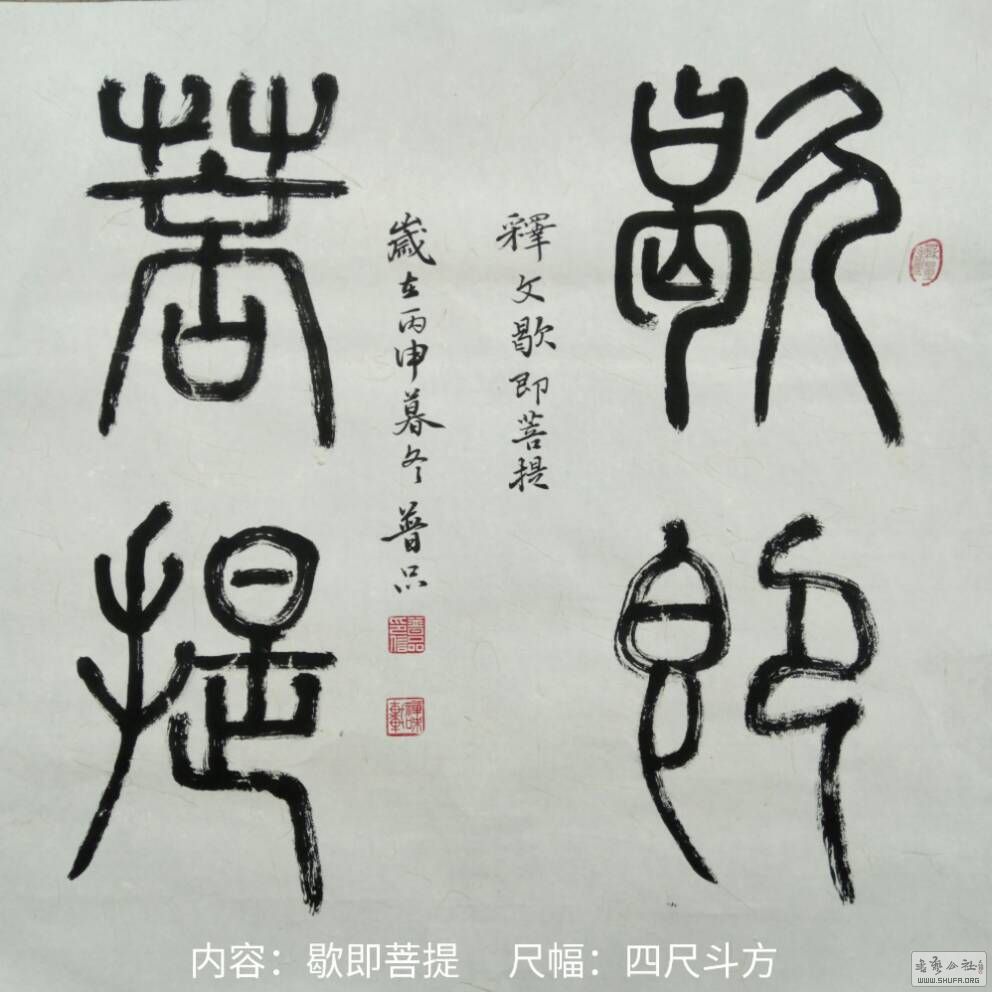 歇即
菩提
釋文歇即菩提
歲在丙申暮冬普品
普品印信
禪味軒
内容：歇即菩提 尺幅：四尺斗方
WWW.SHUFA.ORG